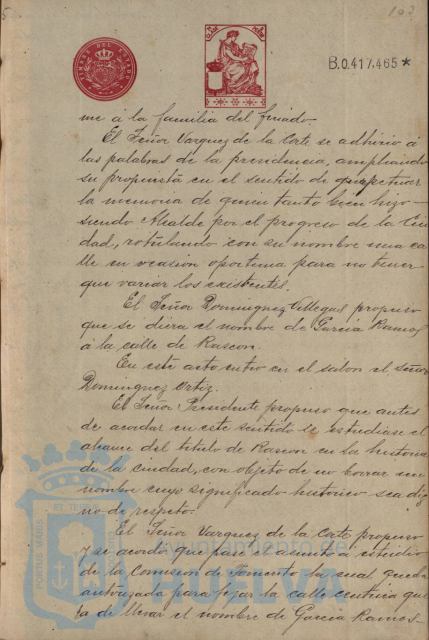 103
TIMBRE DEL ESTADO
B.0.417.465*
me á la familia del finado.
El Señor Vazquez de la Corte se adhirio á
las palabras de la presidencia, ampliando
su propuesta en el sentido de perpetuar
la memoria de quien tanto bien hizo
siendo Alcalde por el progreso de la Ciu
dad, rotulando con su nombre una ca
lle en ocasión oportuna para no tener
que variar los existentes.
El Señor Dominguez Villegas propuso
que se diera el nombre de Garcia Ramos
á la calle de Rascon.
En este acto entro en el salon el señor
Dominguez Ortiz.
El Señor Presidente propuso que antes
de acordar en este sentido se estudiase el
alcance del titulo de Rascon en la historia
de la ciudad, con objeto de no borrar un
nombre cuyo significado historico sea dig
no de respeto.
El Señor Vazquez de la Corte propuso
y se acordó que pase el asunto a estudio
de la Comision de Fomento la cual queda
autorizada para fijar la calle centrica que
ha de llevar el nombre de Garcia Ramos
Ayuntamiento de
HUELVA
PORTUS MARIS